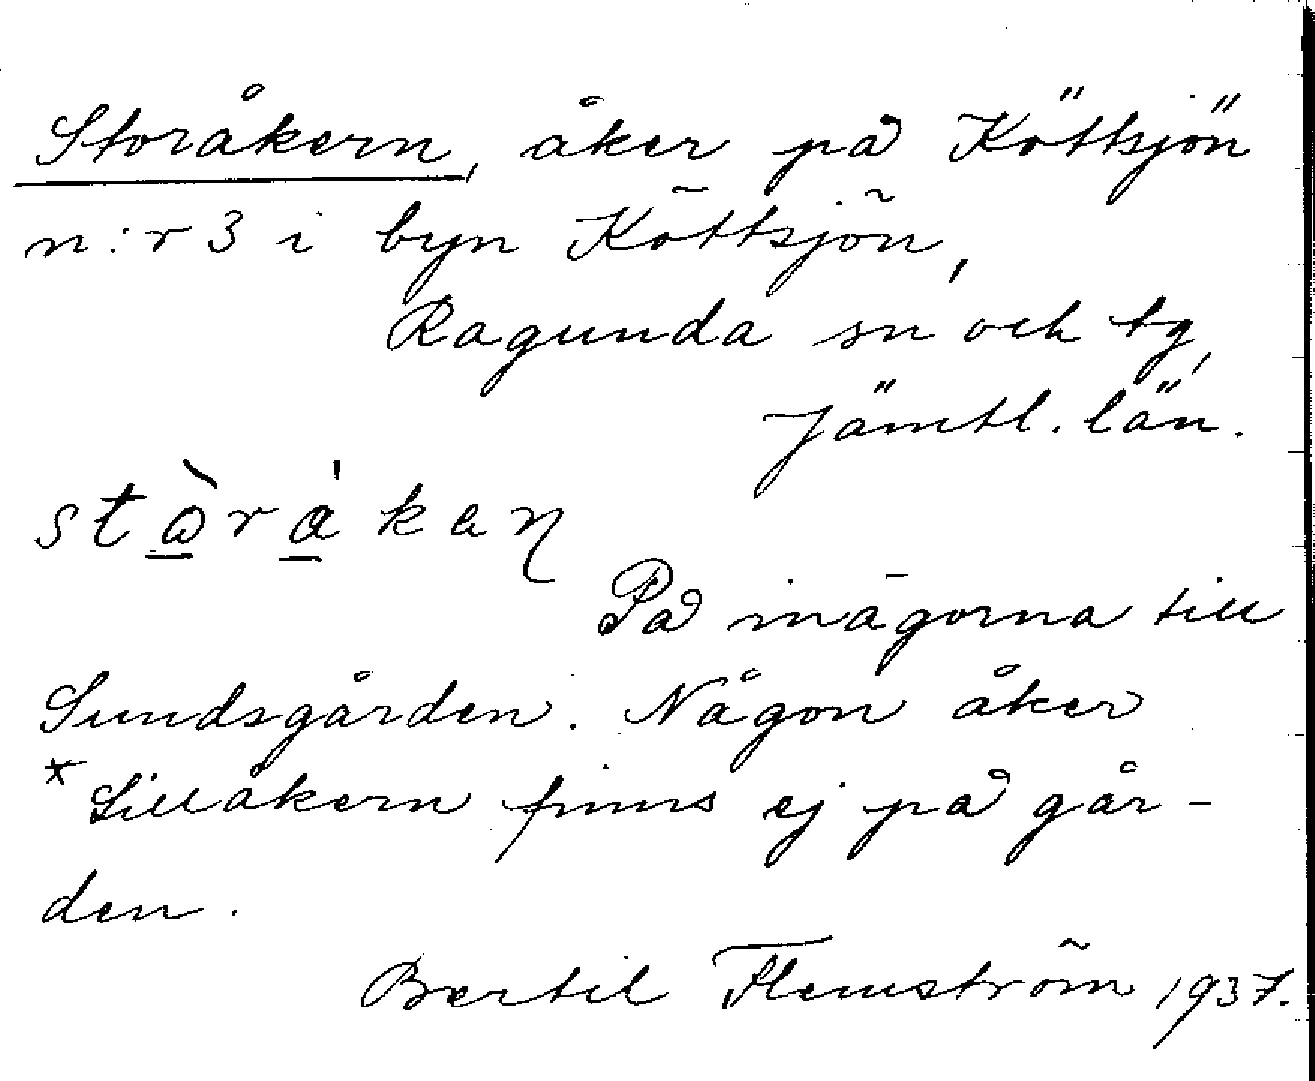 Storåkern, åker på Köttsjön
n:r 3 i byn Köttsjön,
Ragunda sn och tg,
Jämtl. län.
stò̱rá̱kaɳ
På inägorna till
Sundsgården. Någon åker
*Lillåkern finns ej på går-
den.
Bertil Flemström 1937.